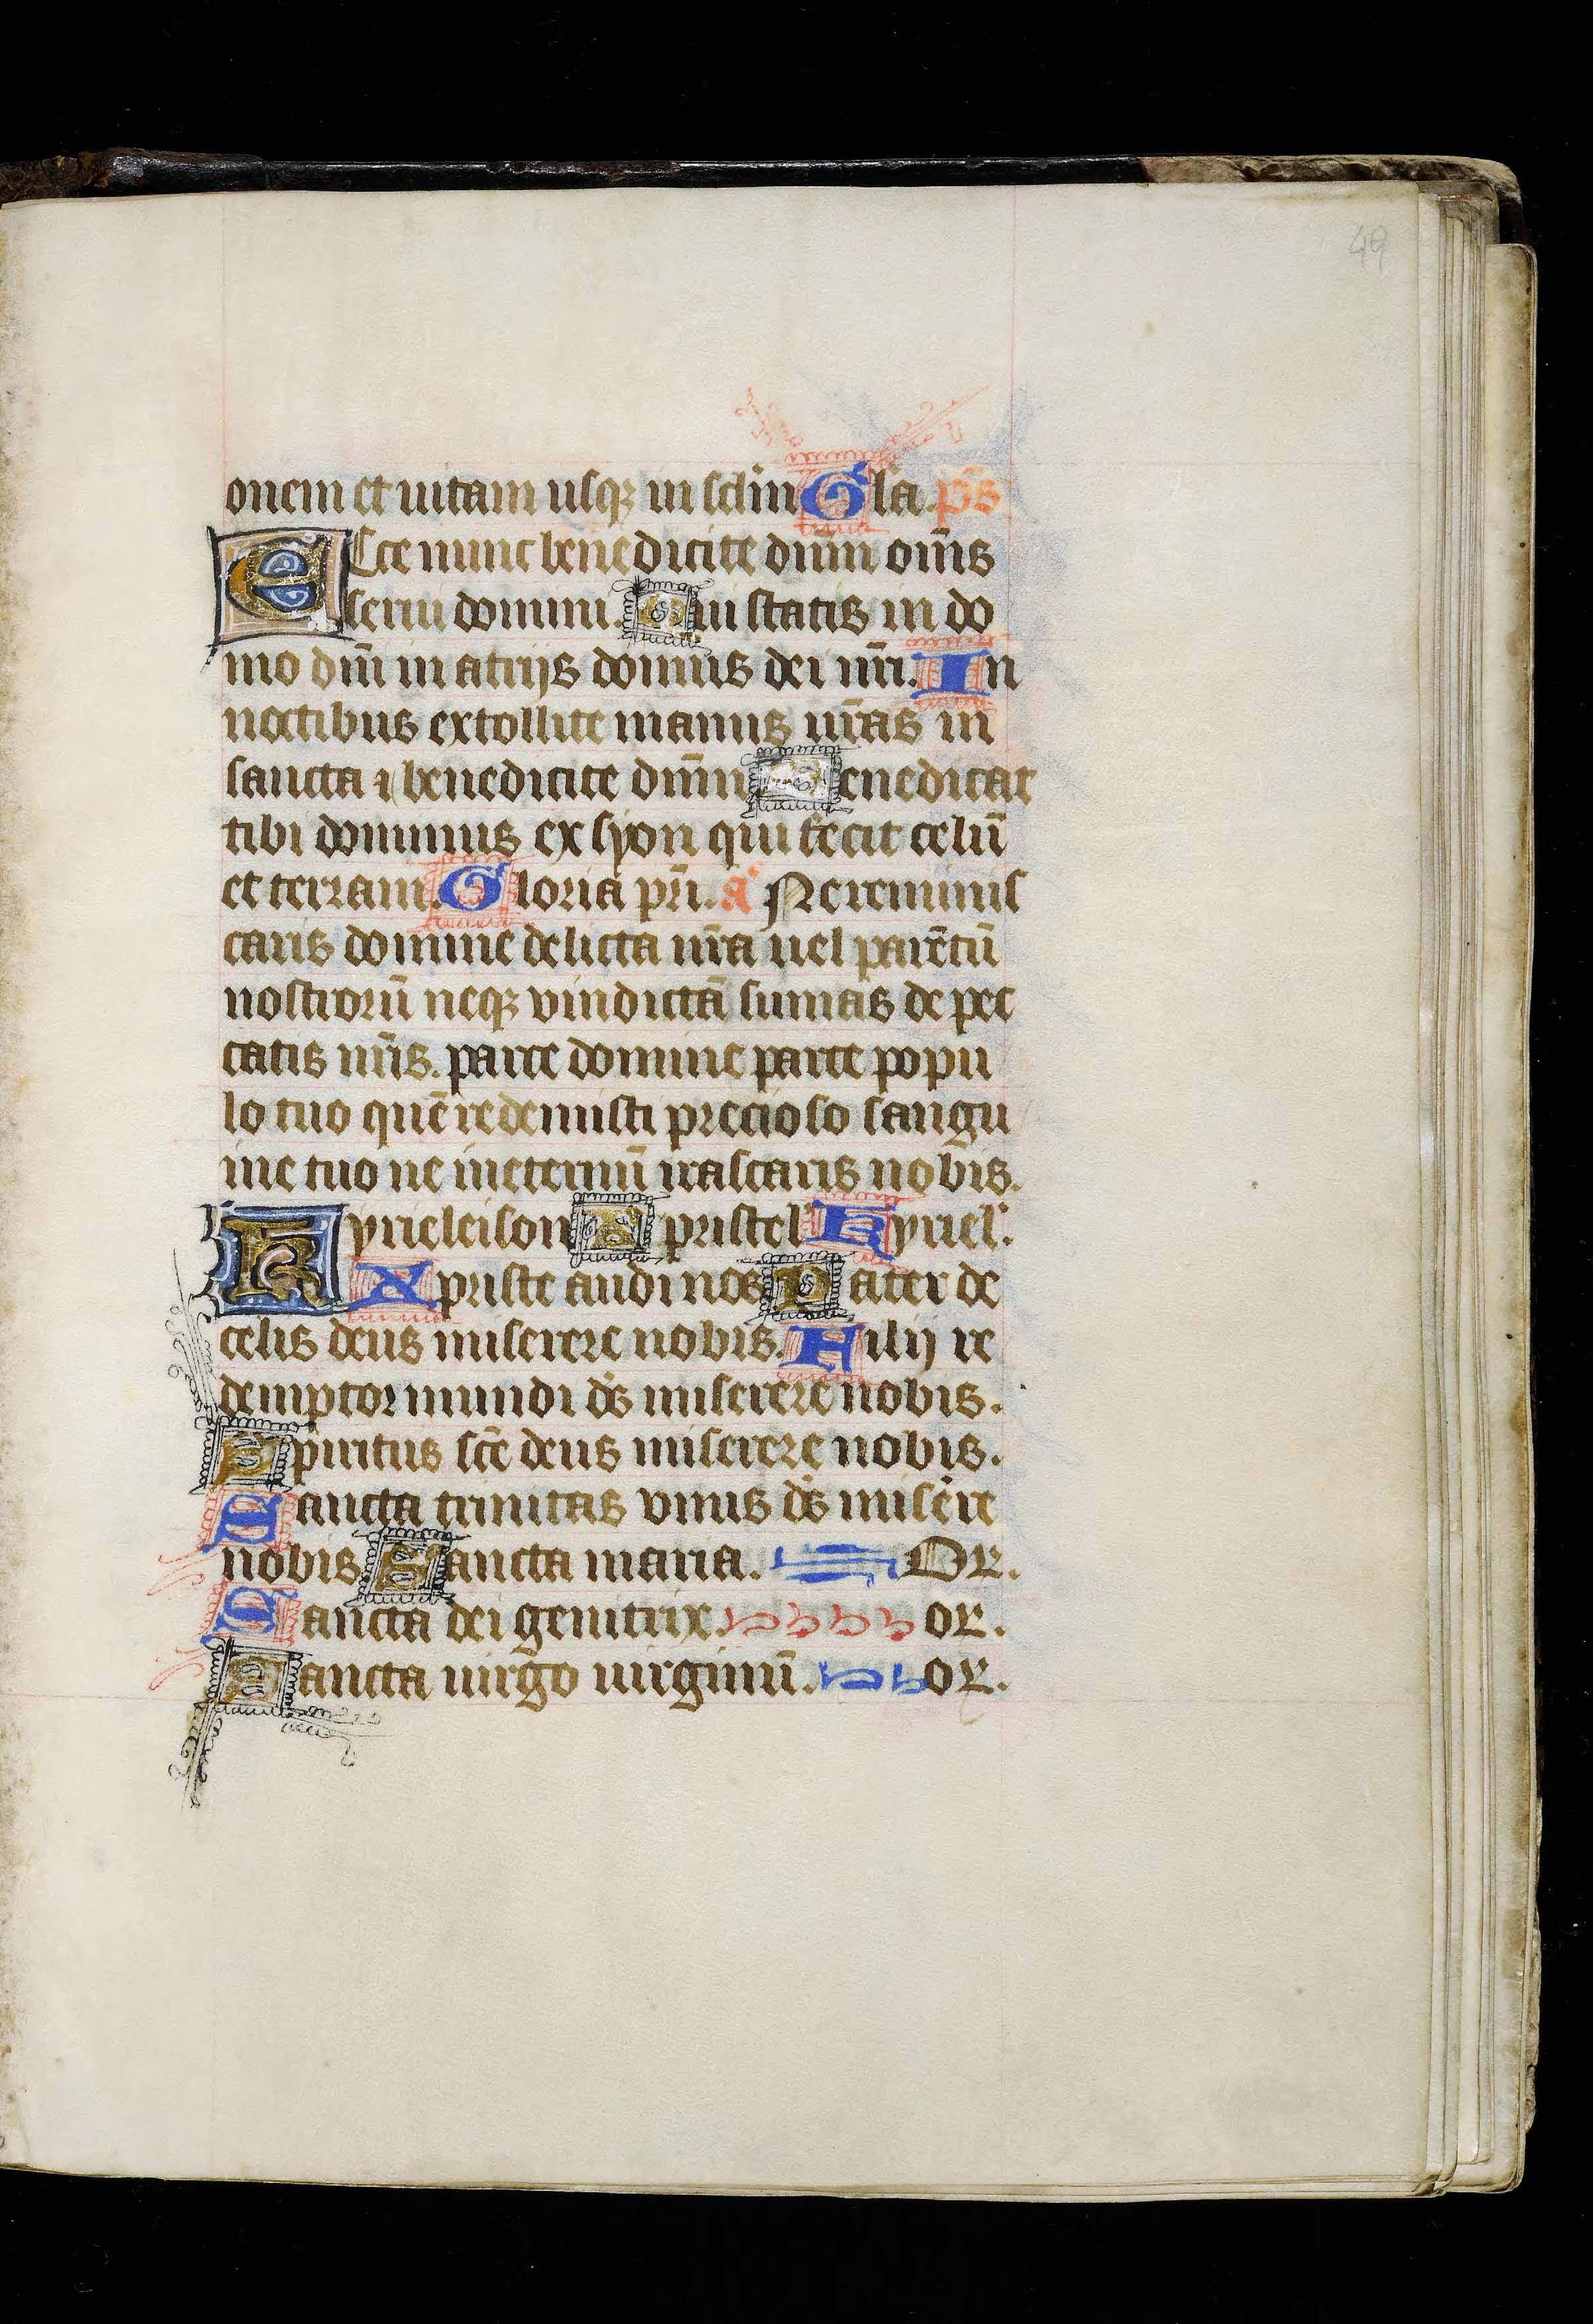 49
onem et uitam usq; in sclm Gla. ps
ECce nunc benedicite dn̄m om̄s
serui domini. Qui statis in do
mo dn̄i in atrijs domus dei nr̄i. In
noctibus extollite manus ur̄as in
sancta ⁊ benedicite dn̄m Benedicat
tibi dominus ex syon qui fecit celū
et terram. Gloria pr̄i. a Ne reminis
caris domine delicta nr̄a uel parētū
nostrorū neq; vindictā sumas de pec
catis nr̄is. parce domine parce popu
lo tuo quē redemisti precioso sangu
ine tuo ne ineternū irascaris nobis.
Kyrieleison Xpristel Kyriel.
Xpriste audi nos Pater de
celis deus miserere nobis. Filij re
demptor mundi ds miserere nobis.
Spiritus sc̄e deus miserere nobis.
Sancta trinitas vnus ds misere
nobis Sancta maria. Or.
Sancta dei genitrix. or.
Sancta uirgo uirginū. or.